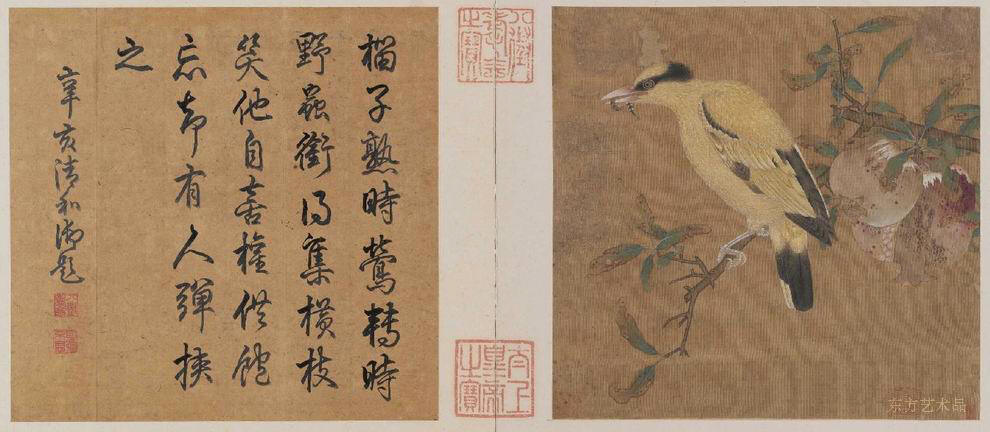 八徵
耄念
之寶
太上
皇帝
之寶
榴子熟時鶯轉時
野蟲銜得集橫枝
笑他自喜權供飽
忘却有人彈挾
之
辛亥清和御題
东方艺术品